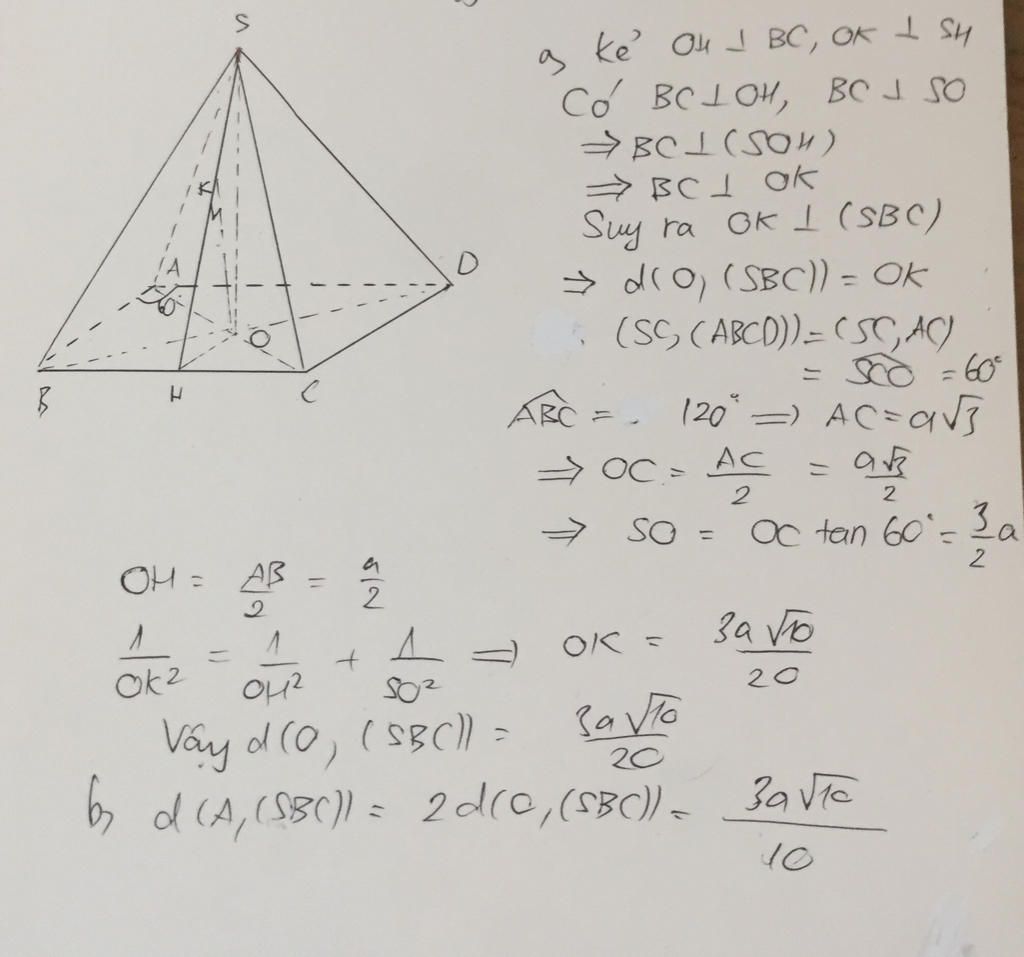 S
K
A
60
D
O
B
H
C
a, kẻ OH ⊥ BC, OK ⊥ SH
Có BC ⊥ OH, BC ⊥ SO
⇒ BC ⊥ (SOH)
⇒ BC ⊥ OK
Suy ra OK ⊥ (SBC)
⇒ d(O, (SBC)) = OK
(SC, (ABCD)) = (SC, AC)
= \widehat{SCO} = 60°
\widehat{ABC} = 120° ⇒ AC = a√3
⇒ OC = AC/2 = a√3/2
⇒ SO = OC tan 60° = 3/2 a
OH = AB/2 = a/2
1/OK² = 1/OH² + 1/SO² ⇒ OK = 3a√10/20
Vây d(O, (SBC)) = 3a√10/20
b, d(A, (SBC)) = 2d(O, (SBC)) = 3a√10/10